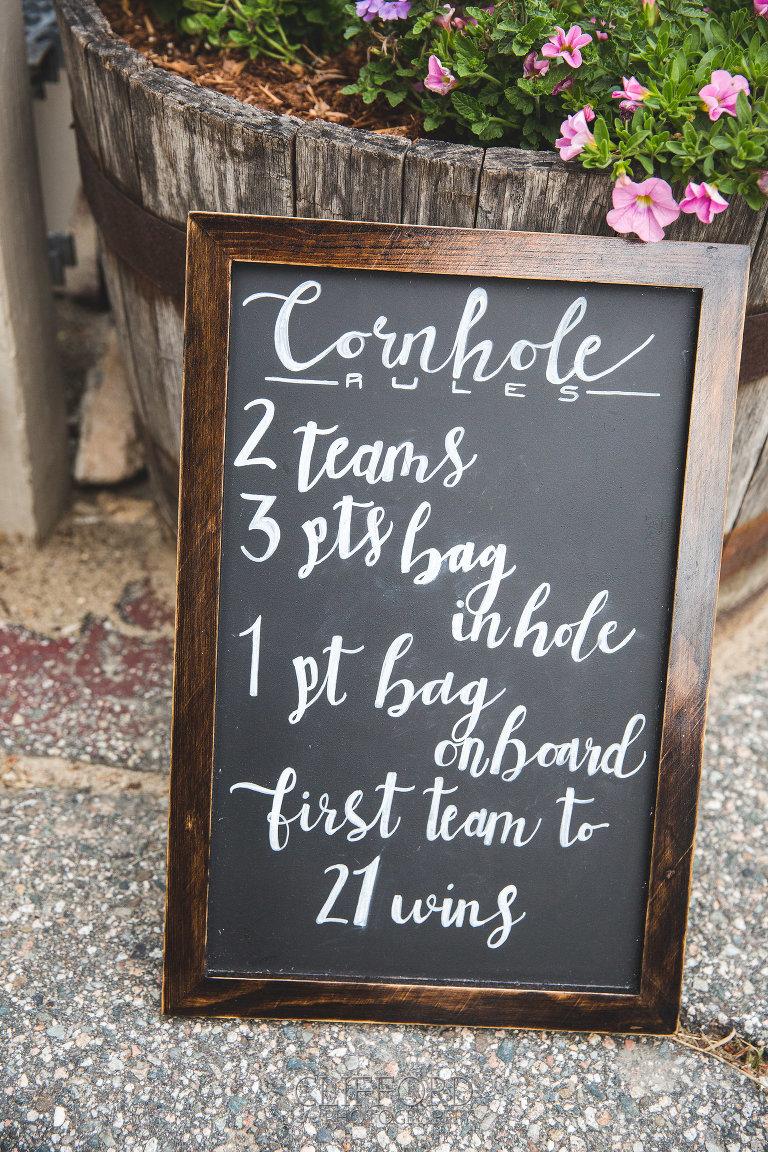 Cornhole
RULES
2 teams
3 pts bag
in hole
1 pt bag
on board
first team to
21 wins
CLIFFORD
PHOTOGRAPHY